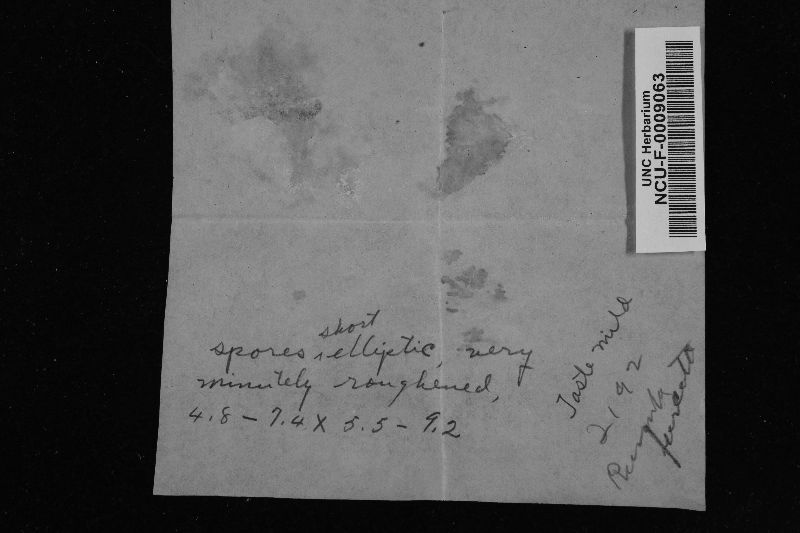 UNC Herbarium
NCU-F-0009063
short
spores, elliptic, very
minutely roughened,
4.8 – 7.4 X 5.5 – 9.2
Taste mild
2192